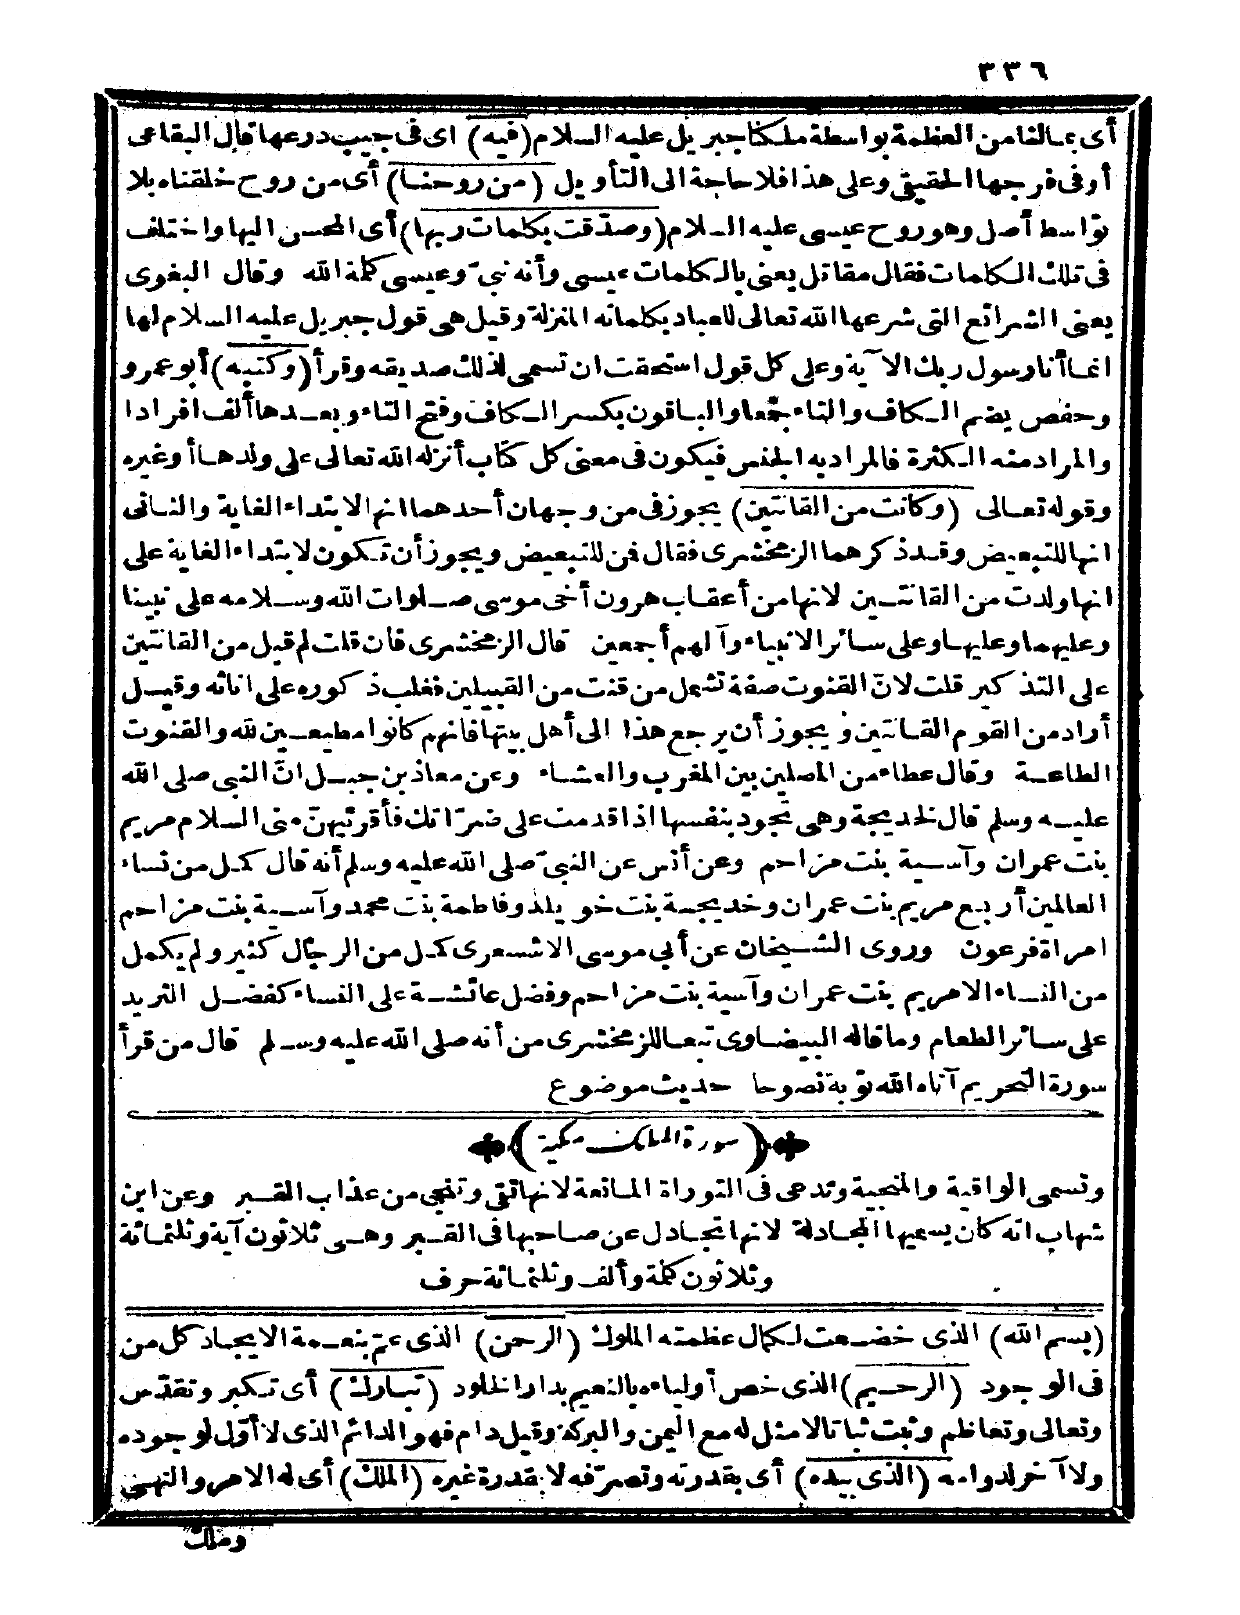 ٣٣٦
أى بمالنا من العظمة بواسطة ملكنا جبريل عليه السلام (فيه) اى فى جيب درعها قال البقاعى
أوفى فرجها الحقيقى وعلى هذا فلا حاجة الى التأويل (من روحنا) أى من روح خلقناه بلا
تواسط أصل وهو روح عيسى عليه السلام (وصدّقت بكلمات ربها) أى المحسن اليها واختلف
فى تلك الكلمات فقال مقاتل يعنى بالكلمات عيسى وأنه نبىّ وعيسى كلمة الله وقال البغوى
يعنى الشرائع التى شرعها الله تعالى للعباد بكلماته المنزلة وقيل هى قول جبريل عليه السلام لها
انما أنا رسول ربك الآية وعلى كل قول استحقت ان تسمى لذلك صديقه وقرأ (وكتبه) أبو عمرو
وحفص بضم الكاف والتاء جمعا والباقون بكسر الكاف وفتح التاء وبعدها ألف افرادا
والمراد منه الكثرة فالمراد به الجنس فيكون فى معنى كل كتاب أنزله الله تعالى على ولدها أوغيره
وقوله تعالى (وكانت من القانتين) يجوز فى من وجهان أحدهما انها لابتداء الغاية والثانى
انها للتبعيض وقد ذكرهما الزمخشرى فقال فمن للتبعيض ويجوز أن تكون لابتداء الغاية على
انها ولدت من القانتين لانها من أعقاب هرون أخى موسى صلوات الله وسلامه على نبينا
وعليهما وعليها وعلى سائر الانبياء وآلهم أجمعين قال الزمخشرى فان قلت لم قيل من القانتين
على التذكير قلت لانّ القنوت صفة تشمل من قنت من القبيلين فغلب ذكوره على اناثه وقيل
أراد من القوم القانتين ويجوز أن يرجع هذا الى أهل بيتها فانهم كانوا مطيعين لله والقنوت
الطاعة وقال عطاء من المصلين بين المغرب والعشاء وعن معاذ بن جبل انّ النبى صلى الله
عليه وسلم قال لخديجة وهى تجود بنفسها اذا قدمت على ضرّاتك فأقرئيهنّ منى السلام مريم
بنت عمران وآسية بنت مزاحم وعن أنس عن النبىّ صلى الله عليه وسلم أنه قال كمل من نساء
العالمين أربع مريم بنت عمران وخديجة بنت خويلد وفاطمة بنت محمد وآسية بنت مزاحم
امراة فرعون وروى الشيخان عن أبى موسى الاشعرى كمل من الرجال كثير ولم يكمل
من النساء الا مريم بنت عمران وآسية بنت مزاحم وفضل عائشة على النساء كفضل الثريد
على سائر الطعام وما قاله البيضاوى تبعا للزمخشرى من أنه صلى الله عليه وسلم قال من قرأ
سورة التحريم آتاه الله توبة نصوحا حديث موضوع
(سورة الملك مكية)
وتسمى الواقية والمنجية وتدعى فى التوراة المانعة لانها تقى وتنجى من عذاب القبر وعن ابن
شهاب انه كان يسميها المجادلة لانها تجادل عن صاحبها فى القبر وهى ثلاثون آية وثلثمائة
وثلاثون كلمة وألف وثلثمائة حرف
(بسم الله) الذى خضعت لكمال عظمته الملوك (الرحمن) الذى عمّ بنعمة الايجاد كل من
فى الوجود (الرحيم) الذى خص أولياءه بالنعيم بدار الخلود (تبارك) أى تكبر وتقدّس
وتعالى وتعاظم وثبت ثباتا لا مثل له مع اليمن والبركة وقيل دام فهو الدائم الذى لا أوّل لوجوده
ولا آخر لدوامه (الذى بيده) أى بقدرته وتصرّفه لا بقدرة غيره (الملك) أى له الامر والنهى
وملك